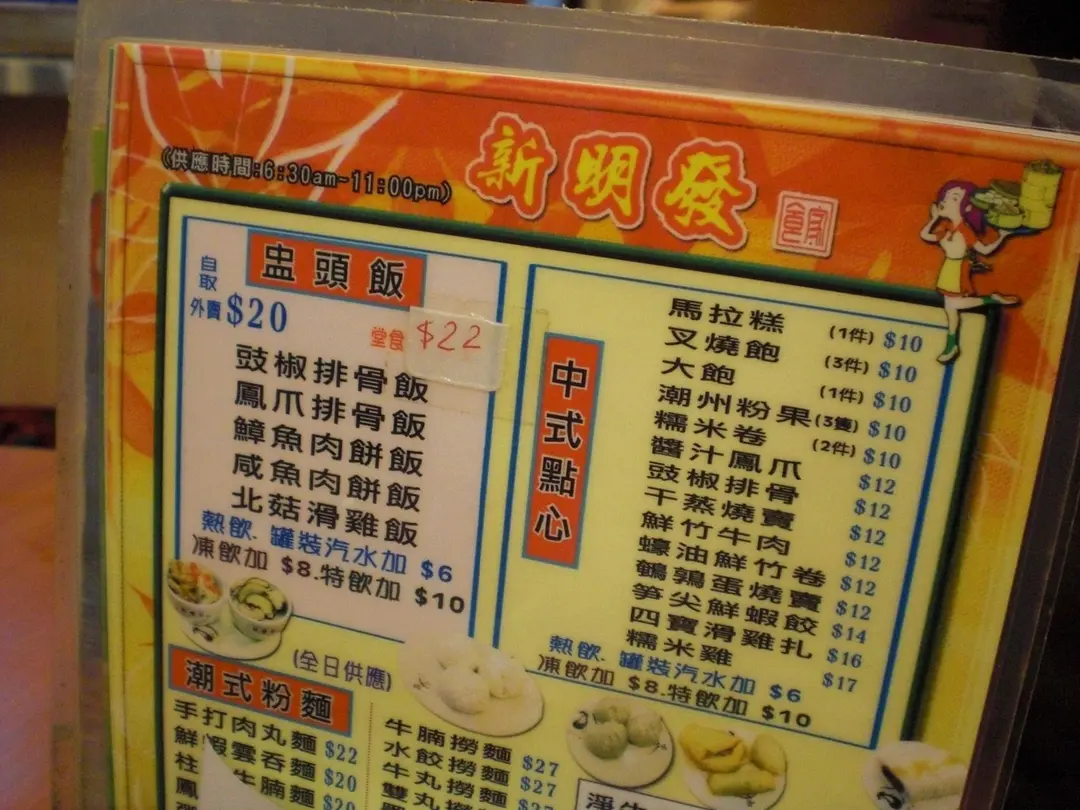 (供應時間:6:30am~11:00pm)
新明發
食家
盅頭飯
自取
外賣 $20
堂食 $22
豉椒排骨飯
鳳爪排骨飯
鱆魚肉餅飯
咸魚肉餅飯
北菇滑雞飯
熱飲. 罐裝汽水加 $6
凍飲加 $8.特飲加 $10
中式點心
馬拉糕 (1件) $10
叉燒飽 (3件) $10
大飽 (1件) $10
潮州粉果(3隻) $10
糯米卷 (2件) $10
醬汁鳳爪 $12
豉椒排骨 $12
干蒸燒賣 $12
鮮竹牛肉 $12
蠔油鮮竹卷 $12
鵪鶉蛋燒賣 $12
筍尖鮮蝦餃 $14
四寶滑雞扎 $16
糯米雞 $17
熱飲. 罐裝汽水加 $6
凍飲加 $8.特飲加 $10
潮式粉麵
(全日供應)
手打肉丸麵 $22
鮮蝦雲吞麵 $20
柱 牛腩麵 $20
鳳
牛腩撈麵 $27
水餃撈麵 $27
牛丸撈麵 $27
雙丸撈